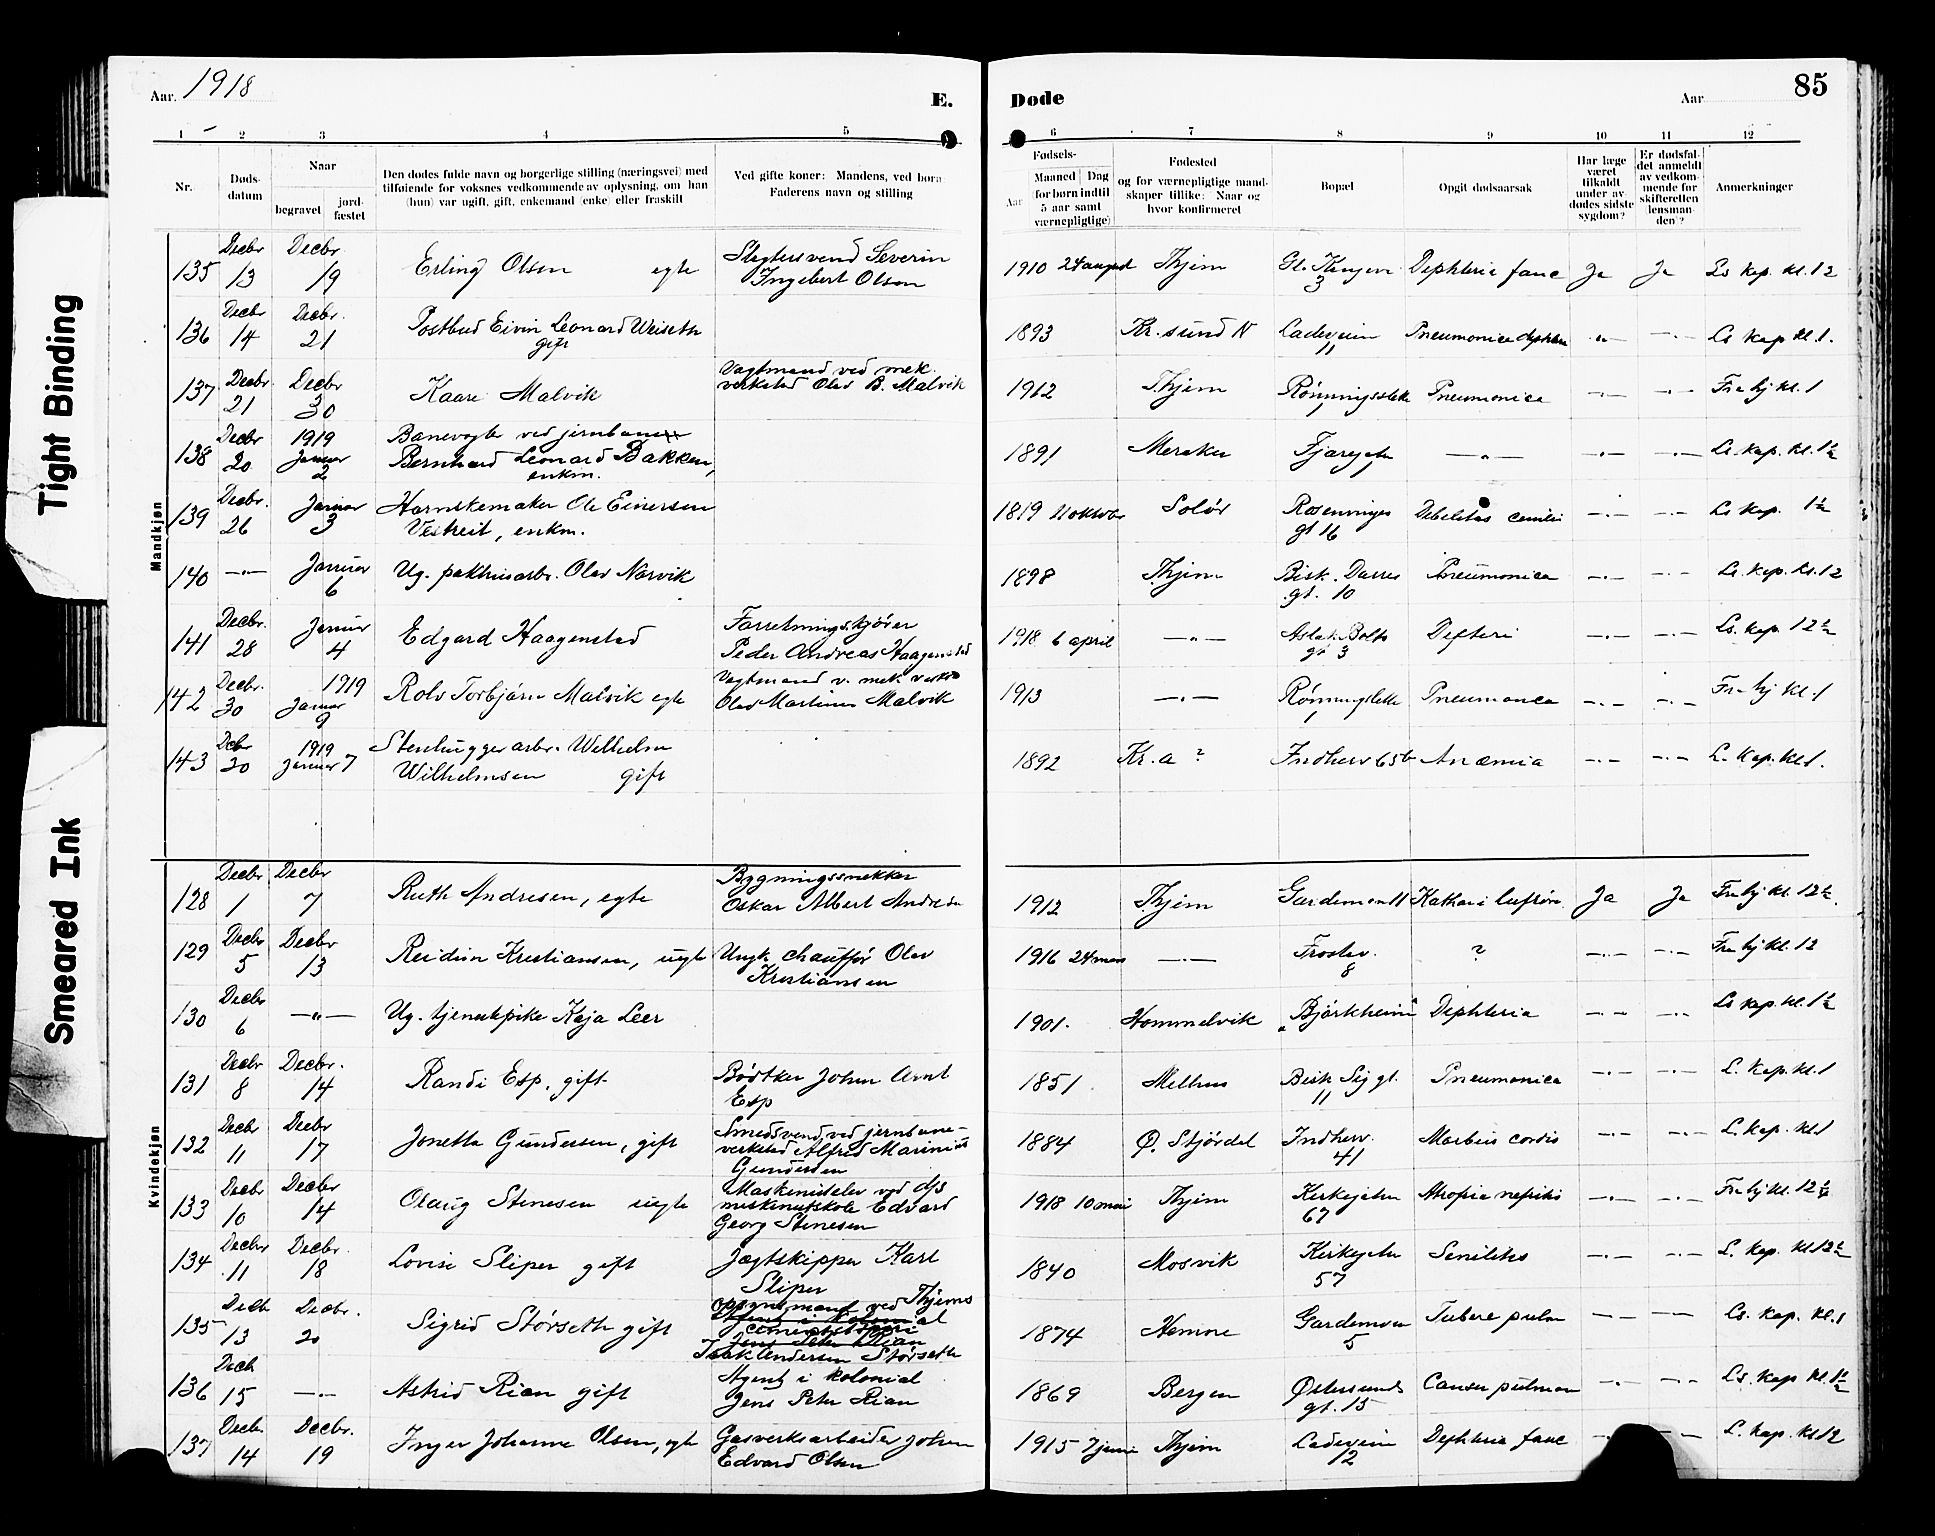 Tight Binding
Smeared Ink
Aar. 1918
E. Døde
Aar
85
1 2 3 4 5 6 7 8 9 10 11 12
Nr.
Døds-
datum
Naar
begravet
jord-
fæstet
Den dødes fulde navn og borgerlige stilling (næringsvei) med
tilføiende for voksnes vedkommende av oplysning, om han
(hun) var ugift, gift, enkemand (enke) eller fraskilt
Ved gifte koner: Mandens, ved børn
Faderens navn og stilling
Fødsels-
Aar
Maaned Dag
for børn indtil
5 aar samt
værnepligtige)
Fødested
og for værnepligtige mand-
skaper tillike: Naar og
hvor konfirmeret
Bopæl
Opgit dødsaarsak
Har læge
været
tilkaldt
under av-
dødes sidste
sygdom?
Er dødsfal-
det anmeldt
av vedkom-
mende for
skifteretten
(lensman-
den)?
Anmerkninger
Mandkjøn
135 Decbr 13 Decbr 19 Erling Olsen egte Slagtersvend Severin
Ingebert Olsen 1910 24 august Thjem 3 Diphteria fauc Ja Ja Ls kap. kl. 12
136 Decbr 14 Decbr. 21 Postbud Eivin Leonard Weiseth
gift 1893 Kr. sund N Ladeveien 11 Pneumonica -"- -"- Ls kap kl 1.
137 Decbr. 21 Decbr 30 Kaare Malvik Vagtmand ved mek.
verksted Olav B. Malvik 1912 Thjem Rønningsletta 1 Pneumonica -"- -"- Fra hj kl. 1
138 Decbr 20 1919 Januar 2 Banevogter ved jernbanen
Bernhard Leonard Bakken,
enkm. 1891 Meraker -"- -"- -"- Ls. kap. kl. 1½
139 Decbr. 26 Januar 3 Harnskemaker Ole Einersen
Vestreit, enkm. 1819 11 oktober Solør Rosenvinges
gt 16 Debilitas senilis -"- -"- Ls kap. 1½
140 -"- Januar 6 Ug. pakhusarb. Olav Narvik 1898 Thjem Bisk. Darres
gt. 10 Pneumonica -"- -"- Ls. kap. kl. 12
141 Decbr. 28 Januar 4 Edgard Haagenstad Forretningskjører
Peder Andreas Haagenstad 1918 6 april -"- Aslak Bolts
gt 3 Difteri -"- -"- Ls. kap. 12½
142 Decbr. 30 1919 Januar 9 Rolv Torbjørn Malvik egte Vagtmand v. mek. verksted
Olav Martinus Malvik 1913 -"- Rønningsletta 1 Pneumonica -"- -"- Fra hj kl. 1
143 Decbr 30 1919 Januar 7 Stenhuggerarb. Wilhelm
Wilhelmsen gift 1892 Kr.a ? Indherv 65b Anæmia -"- -"- L. kap. kl 1.
Kvindekjøn
128 Decbr 1 Decbr 7 Ruth Andresen, egte Bygningssnekker
Oskar Albert Andresen 1912 Thjem Gardemoen 11 Ja Ja Fra hj kl. 12½.
129 Decbr 5 Decbr 13 Reidun Kristiansen, uegte Ungk. chauffør Olav
Kristiansen 1916 24 mars -"- Frostav.
8 ? -"- -"- Fra hj kl. 12
130 Decbr 6 -"- Ug. tjenestepike Kaja Leer 1901. Hommelvik "Bjørkheim" Diphteria -"- -"- Ls kap. kl. 1½
131 Decbr 8 Decbr. 14 Randi Esp. gift Bødtker Johan Arnt
Esp 1851 Melhus Bisk Sig gt.
11 Pneumonica -"- -"- L. kap. kl. 1
132 Decbr 11 Decbr 17 Jonetta Gundersen, gift Smedsvend ved jernbane-
verksted Alfred Marinius
Gundersen 1884 Ø. Stjørdal Indherv.
41 Morbus cordis -"- -"- L. kap. kl. 1
133 Decbr 10 Decbr 14 Olaug Stenesen uegte Maskinistelev ved d/s
maskinistskole Edvard
Georg Stenesen 1918 10 mai Thjem Kirkegaten
67 -"- -"- Fra hj kl. 12½
134 Decbr 11 Decbr. 18 Lovise Sliper gift Jægtskipper Karl
Sliper 1840 Mosvik Kirkegaten
57 Senilitas -"- -"- L. kap. kl 12½
135 Decbr 13 Decbr. 20 Sigrid Størseth gift Opsynsmand ved Thjems
Agent i kolonial
cementstøperi
Jens Peter Rian
Isak Andersen Størseth 1874 Hemne Gardemoen
5 Tuberc pulm -"- -"- Ls. kap. kl. 1
136 Decbr 15 -"- Astrid Rian gift Agent i kolonial
Jens Peter Rian 1869 Bergen Østersunds
gt. 15 Cancer pulmon -"- -"- Ls. kap. kl. 1½
137 Decbr. 14 Decbr. 19 Inger Johanne Olsen, egte Gasverksarbeider Johan
Edvard Olsen 1915 Thjem Ladeveien
12 Diphteria fauc -"- -"- L. kap. kl 12